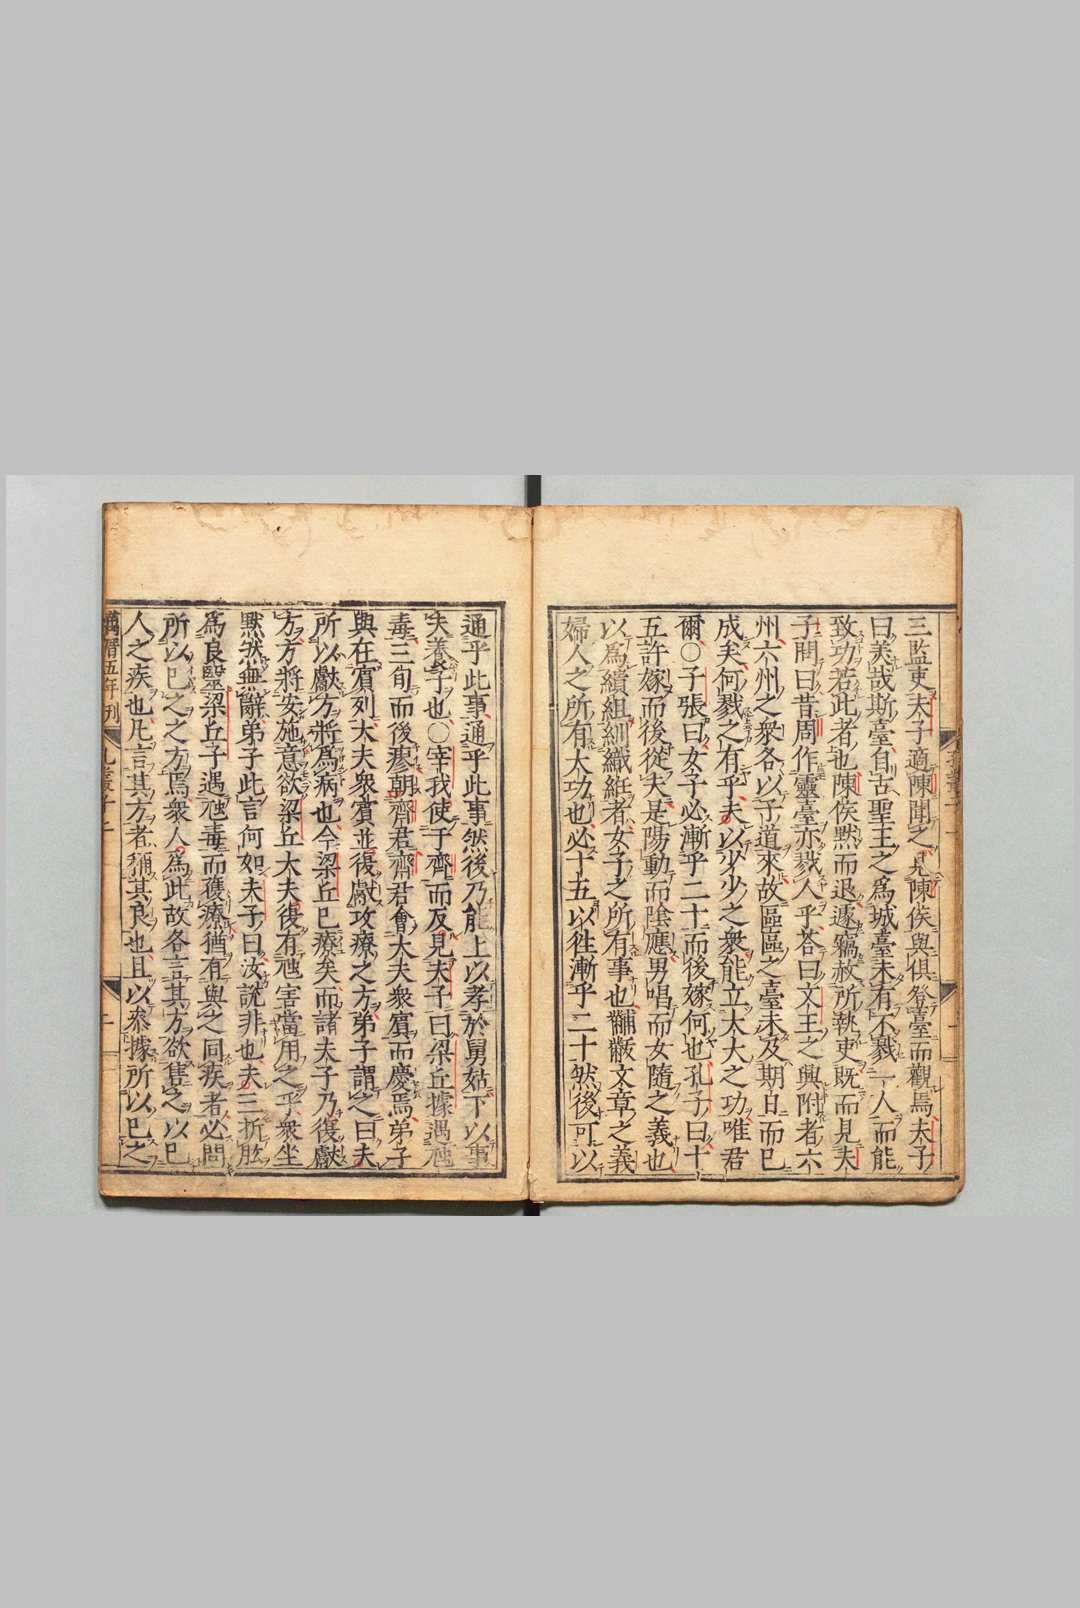 三監吏夫子適陳聞之見陳侯與俱登臺而觀焉夫子
曰美哉斯臺自古聖王之爲城臺未有不戮一人而能
致功若此者也陳侯黙而退遽竊赦所執吏既而見夫
子問曰昔周作靈臺亦戮人乎荅曰文王之興附者六
州六州之衆各以子道來故區區之臺未及期日而已
成矣何戮之有乎夫以少少之衆能立大大之功唯君
爾○子張曰女子必漸乎二十而後嫁何也孔子曰十
五許嫁而後從夫是陽動而陰應男唱而女隨之義也
以爲績組紃織絍者女子之所有事也黼黻文章之義
婦人之所有大功也必十五以徃漸乎二十然後可以
通乎此事通乎此事然後乃能上以孝於舅姑下以事
夫養子也○宰我使于齊而反見夫子曰梁丘據遇虺
毒三旬而後瘳朝齊君齊君會大夫衆賔而慶焉弟子
與在賔列大夫衆賔並復獻攻療之方弟子謂之曰夫
所以獻方將爲病也今梁丘已療矣而諸夫子乃復獻
方方將安施意欲梁丘大夫復有虺害當用之乎衆坐
黙然無辭弟子此言何如夫子曰汝說非也夫三折肱
爲良毉梁丘子遇虺毒而獲療猶有與之同疾者必問
所以已之之方焉衆人爲此故各言其方欲售之以已
人之疾也凡言其方者稱其良也且以參據所以已之
萬曆五年刊 孔叢子上 二